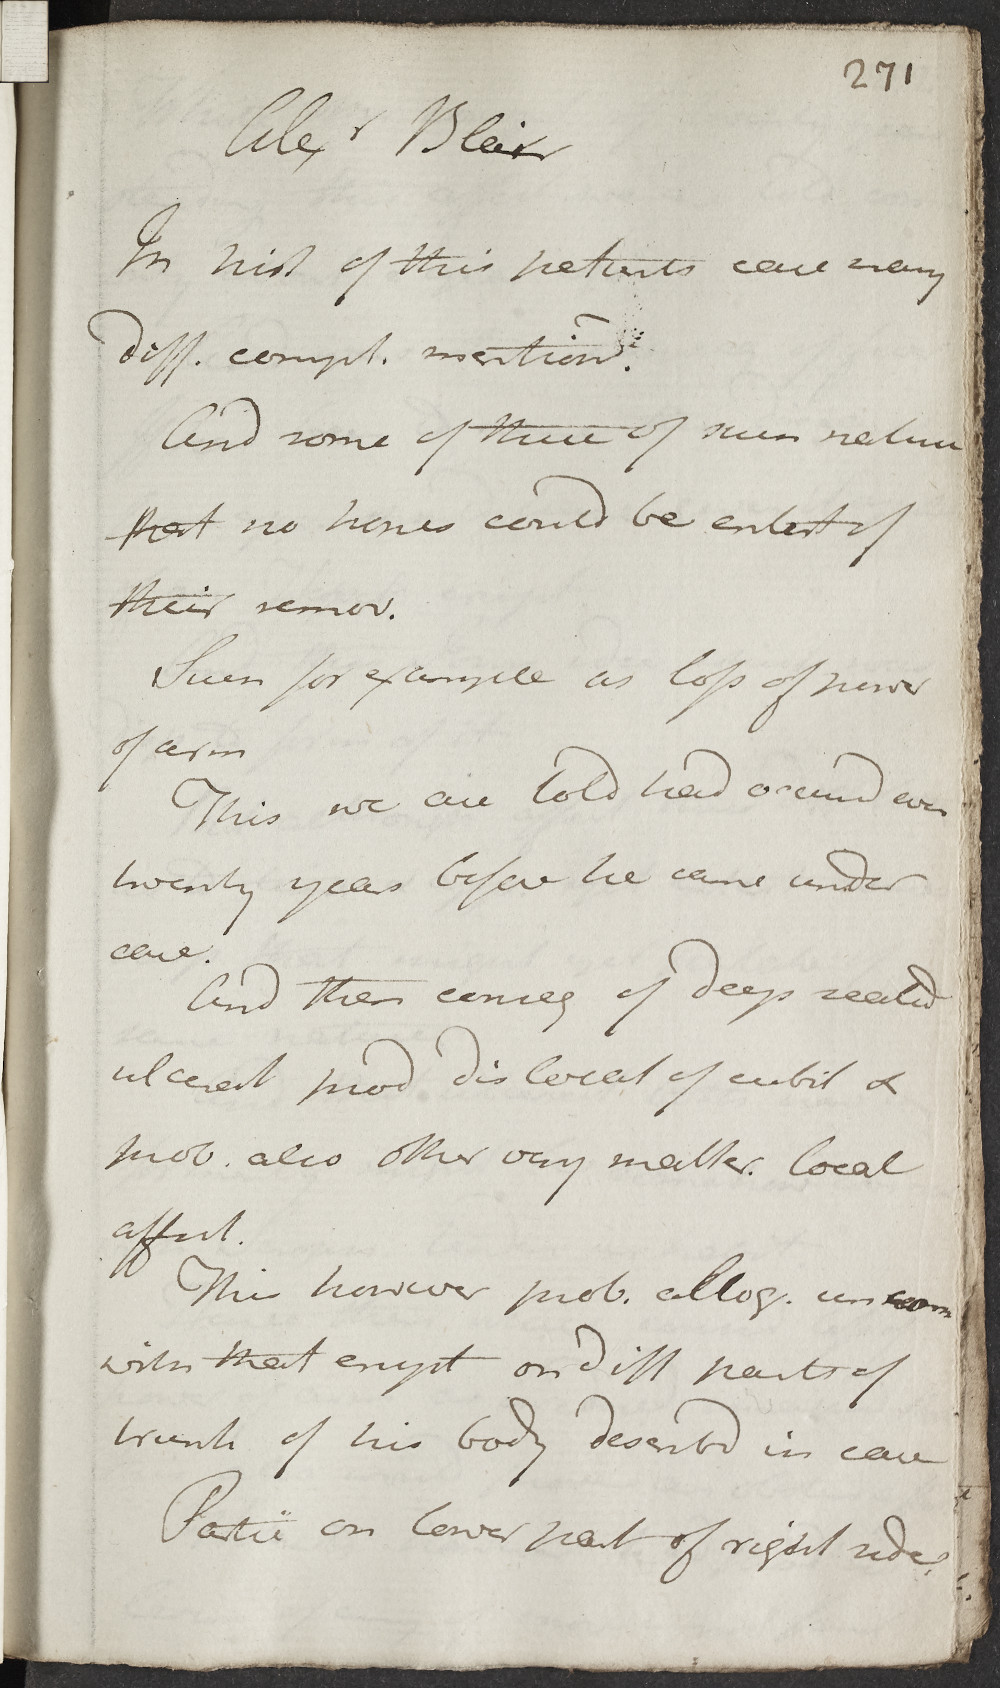 271
Alexr Blair
In hist of this patients case many
diff. compl. mentiond.
And some of these of such nature
that no hopes could be entert of
their remov.
Such for example as loss of power
of arm
This we are told had occurrd even
twenty years before he came under
care.
And then conseq of deep seated
ulcerat prod dislocat of cubit &
prob. also other very matter. local
affect.
This however prob. altog. unconn
with that erupt on diff parts of
trunk of his body describd in case
Partic on lower part of right side,